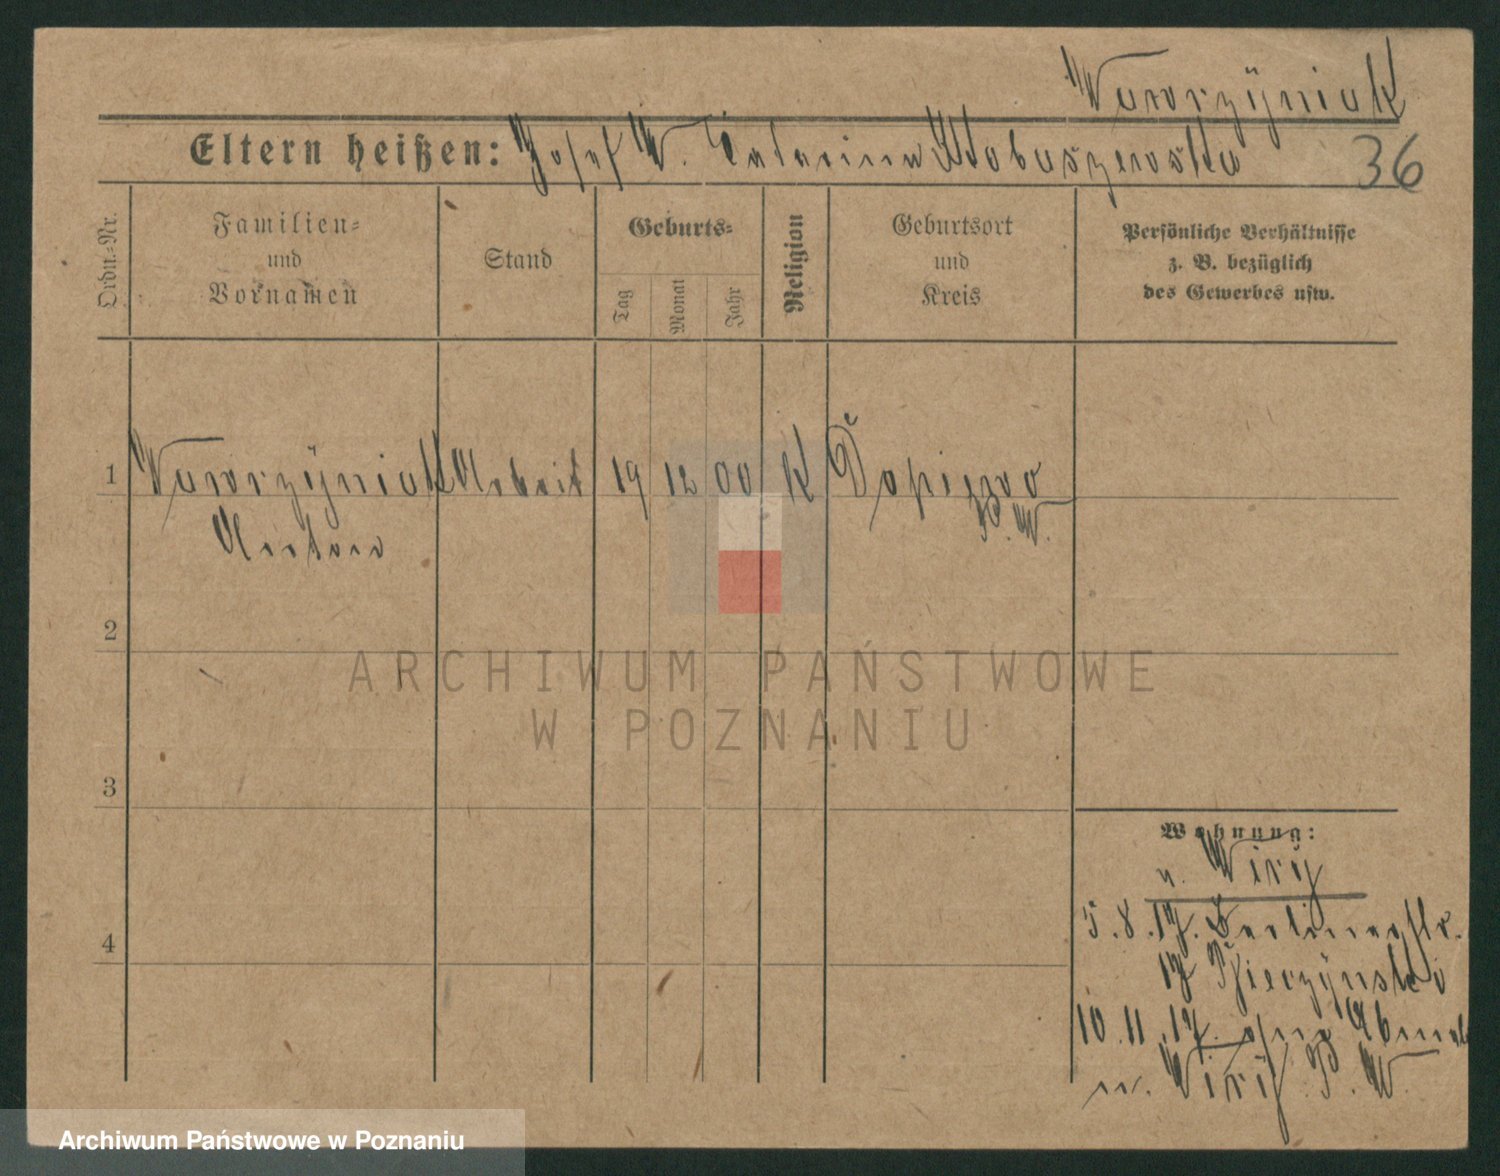 Wawrzÿniak
Eltern heißen: Josef W. Catarina
36
Ordn.-Nr.
Familien-
und
Vornamen
Stand
Geburts-
Tag
Monat
Jahr
Religion
Geburtsort
und
Kreis
Persönliche Verhältnisse
z. B. bezüglich
des Gewerbes usw.
1 Wawrzÿniak Arbeit 19 12 00 K
P. W.
Anton
2
3
4
Wohnung:
v. Wirÿ
5.8.17. Berlinerstr.
17
10.11.17. ohne Abmel
n. Wirÿ P. W.
ARCHIWUM PAŃSTWOWE
W POZNANIU
Archiwum Państwowe w Poznaniu